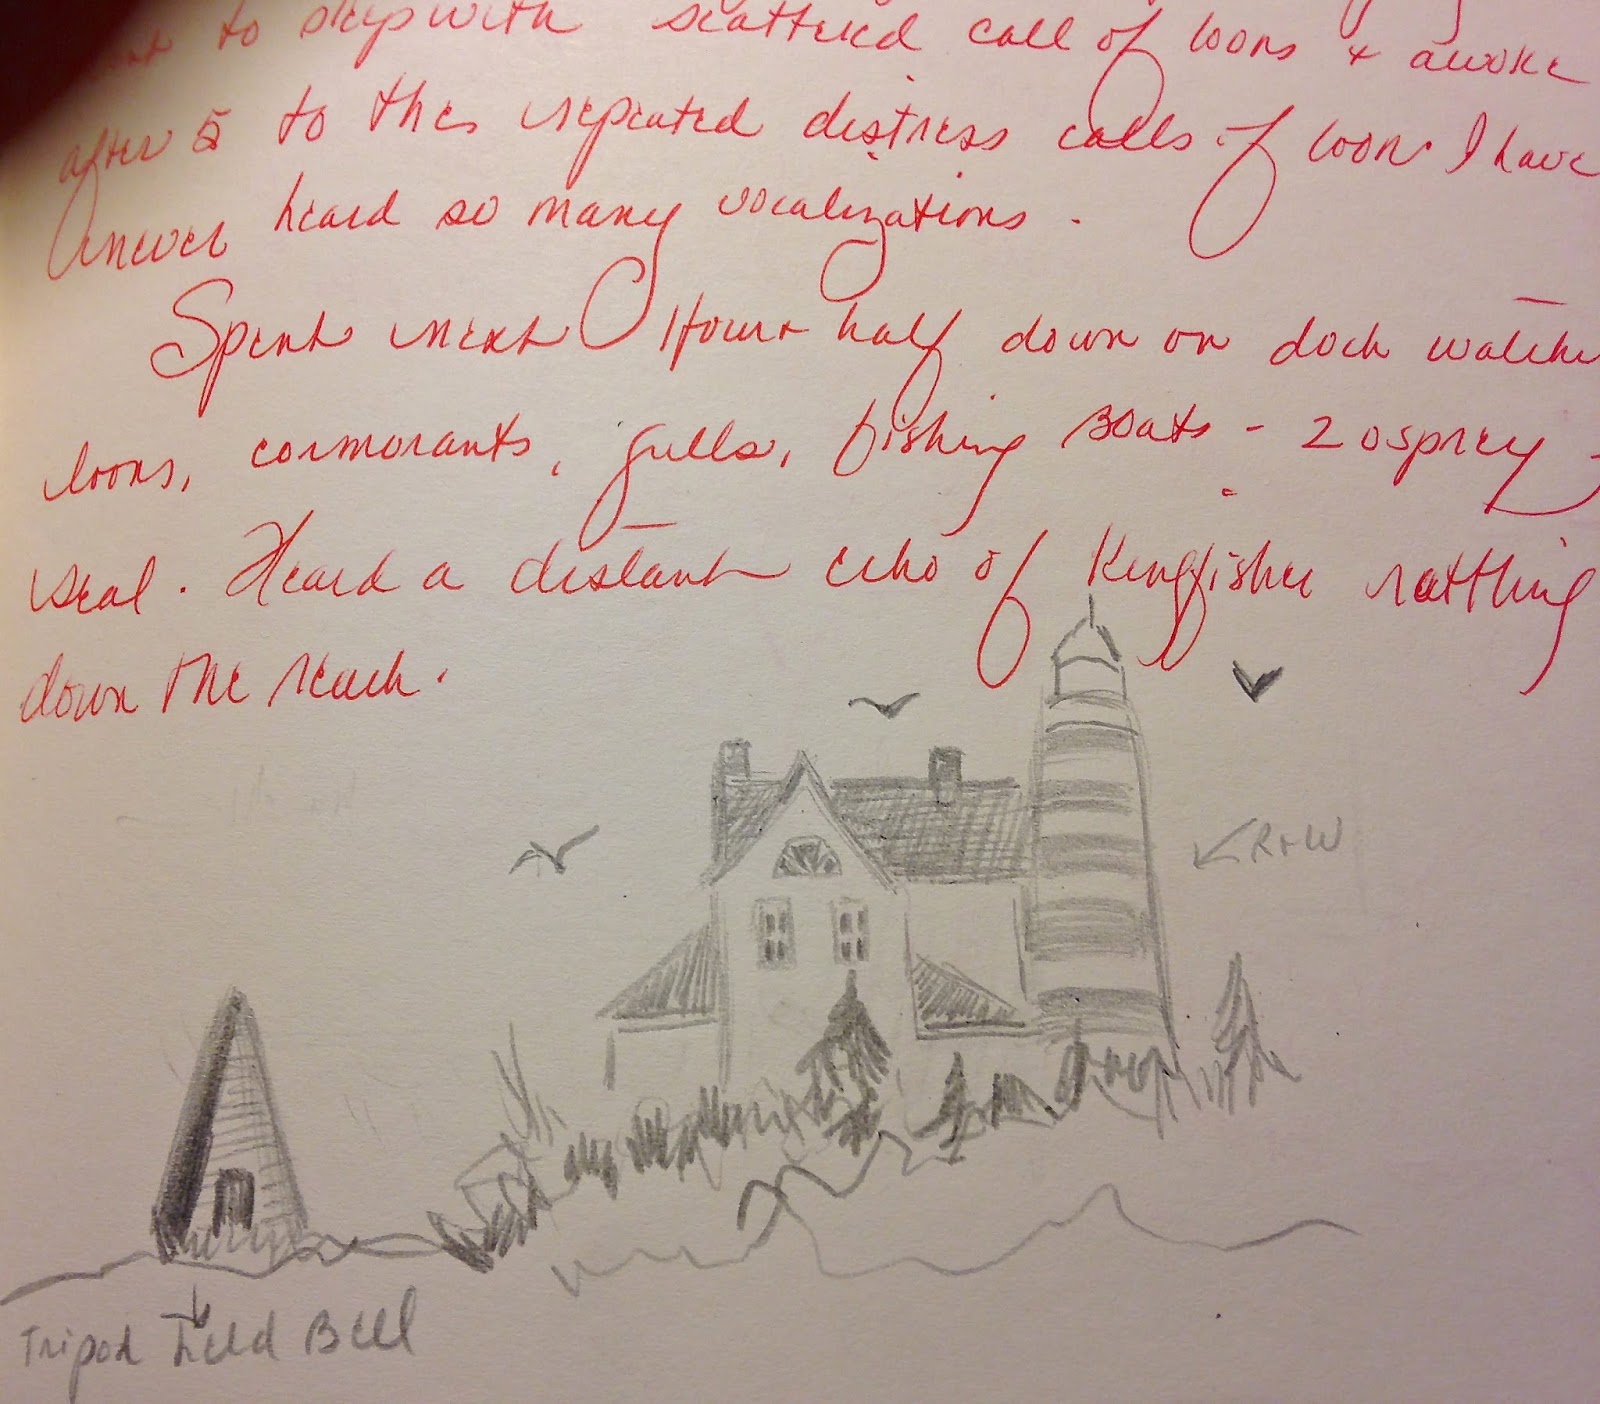 to sleep with scattered call of loons + awoke
after 5 to the repeated distress calls of loon. I have
never heard so many vocalizations.
Spent next Hour + half down on dock watchi
loons, cormorants, gulls, fishing Boats - 2 osprey -
seal. Heard a distant echo of Kingfisher rattling
down the reach.
R + W
Tripod held Bell